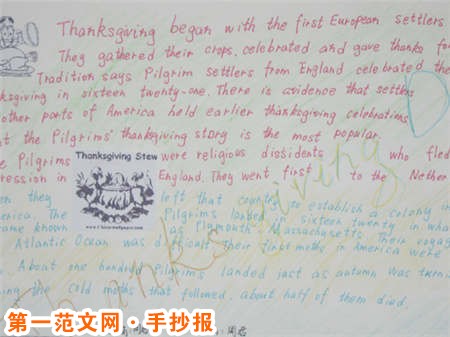 Thanksgiving began with the first European settlers
They gathered their crops, celebrated and gave thanks fo
Tradition says Pilgrim settlers from England celebrated the
ksgiving in sixteen twenty-one. There is evidence that settlers
other parts of America held earlier thanksgiving celebrations
at the Pilgrims' thanksgiving story is the most popular.
e Pilgrims were religious dissidents who fled
Thanksgiving Stew
ression in England. They went first to the Nether
en they left that country to establish a colony in
erica. The Pilgrims landed in sixteen twenty in what
came known as Plymouth, Massachusetts. Their voyage
Atlantic Ocean was difficult. Their first moths in America were
About one hundred pilgrims landed just as autumn was turni
ing the cold moths that followed, about half of them died.
Thanksgiving
第一范文网·手抄报